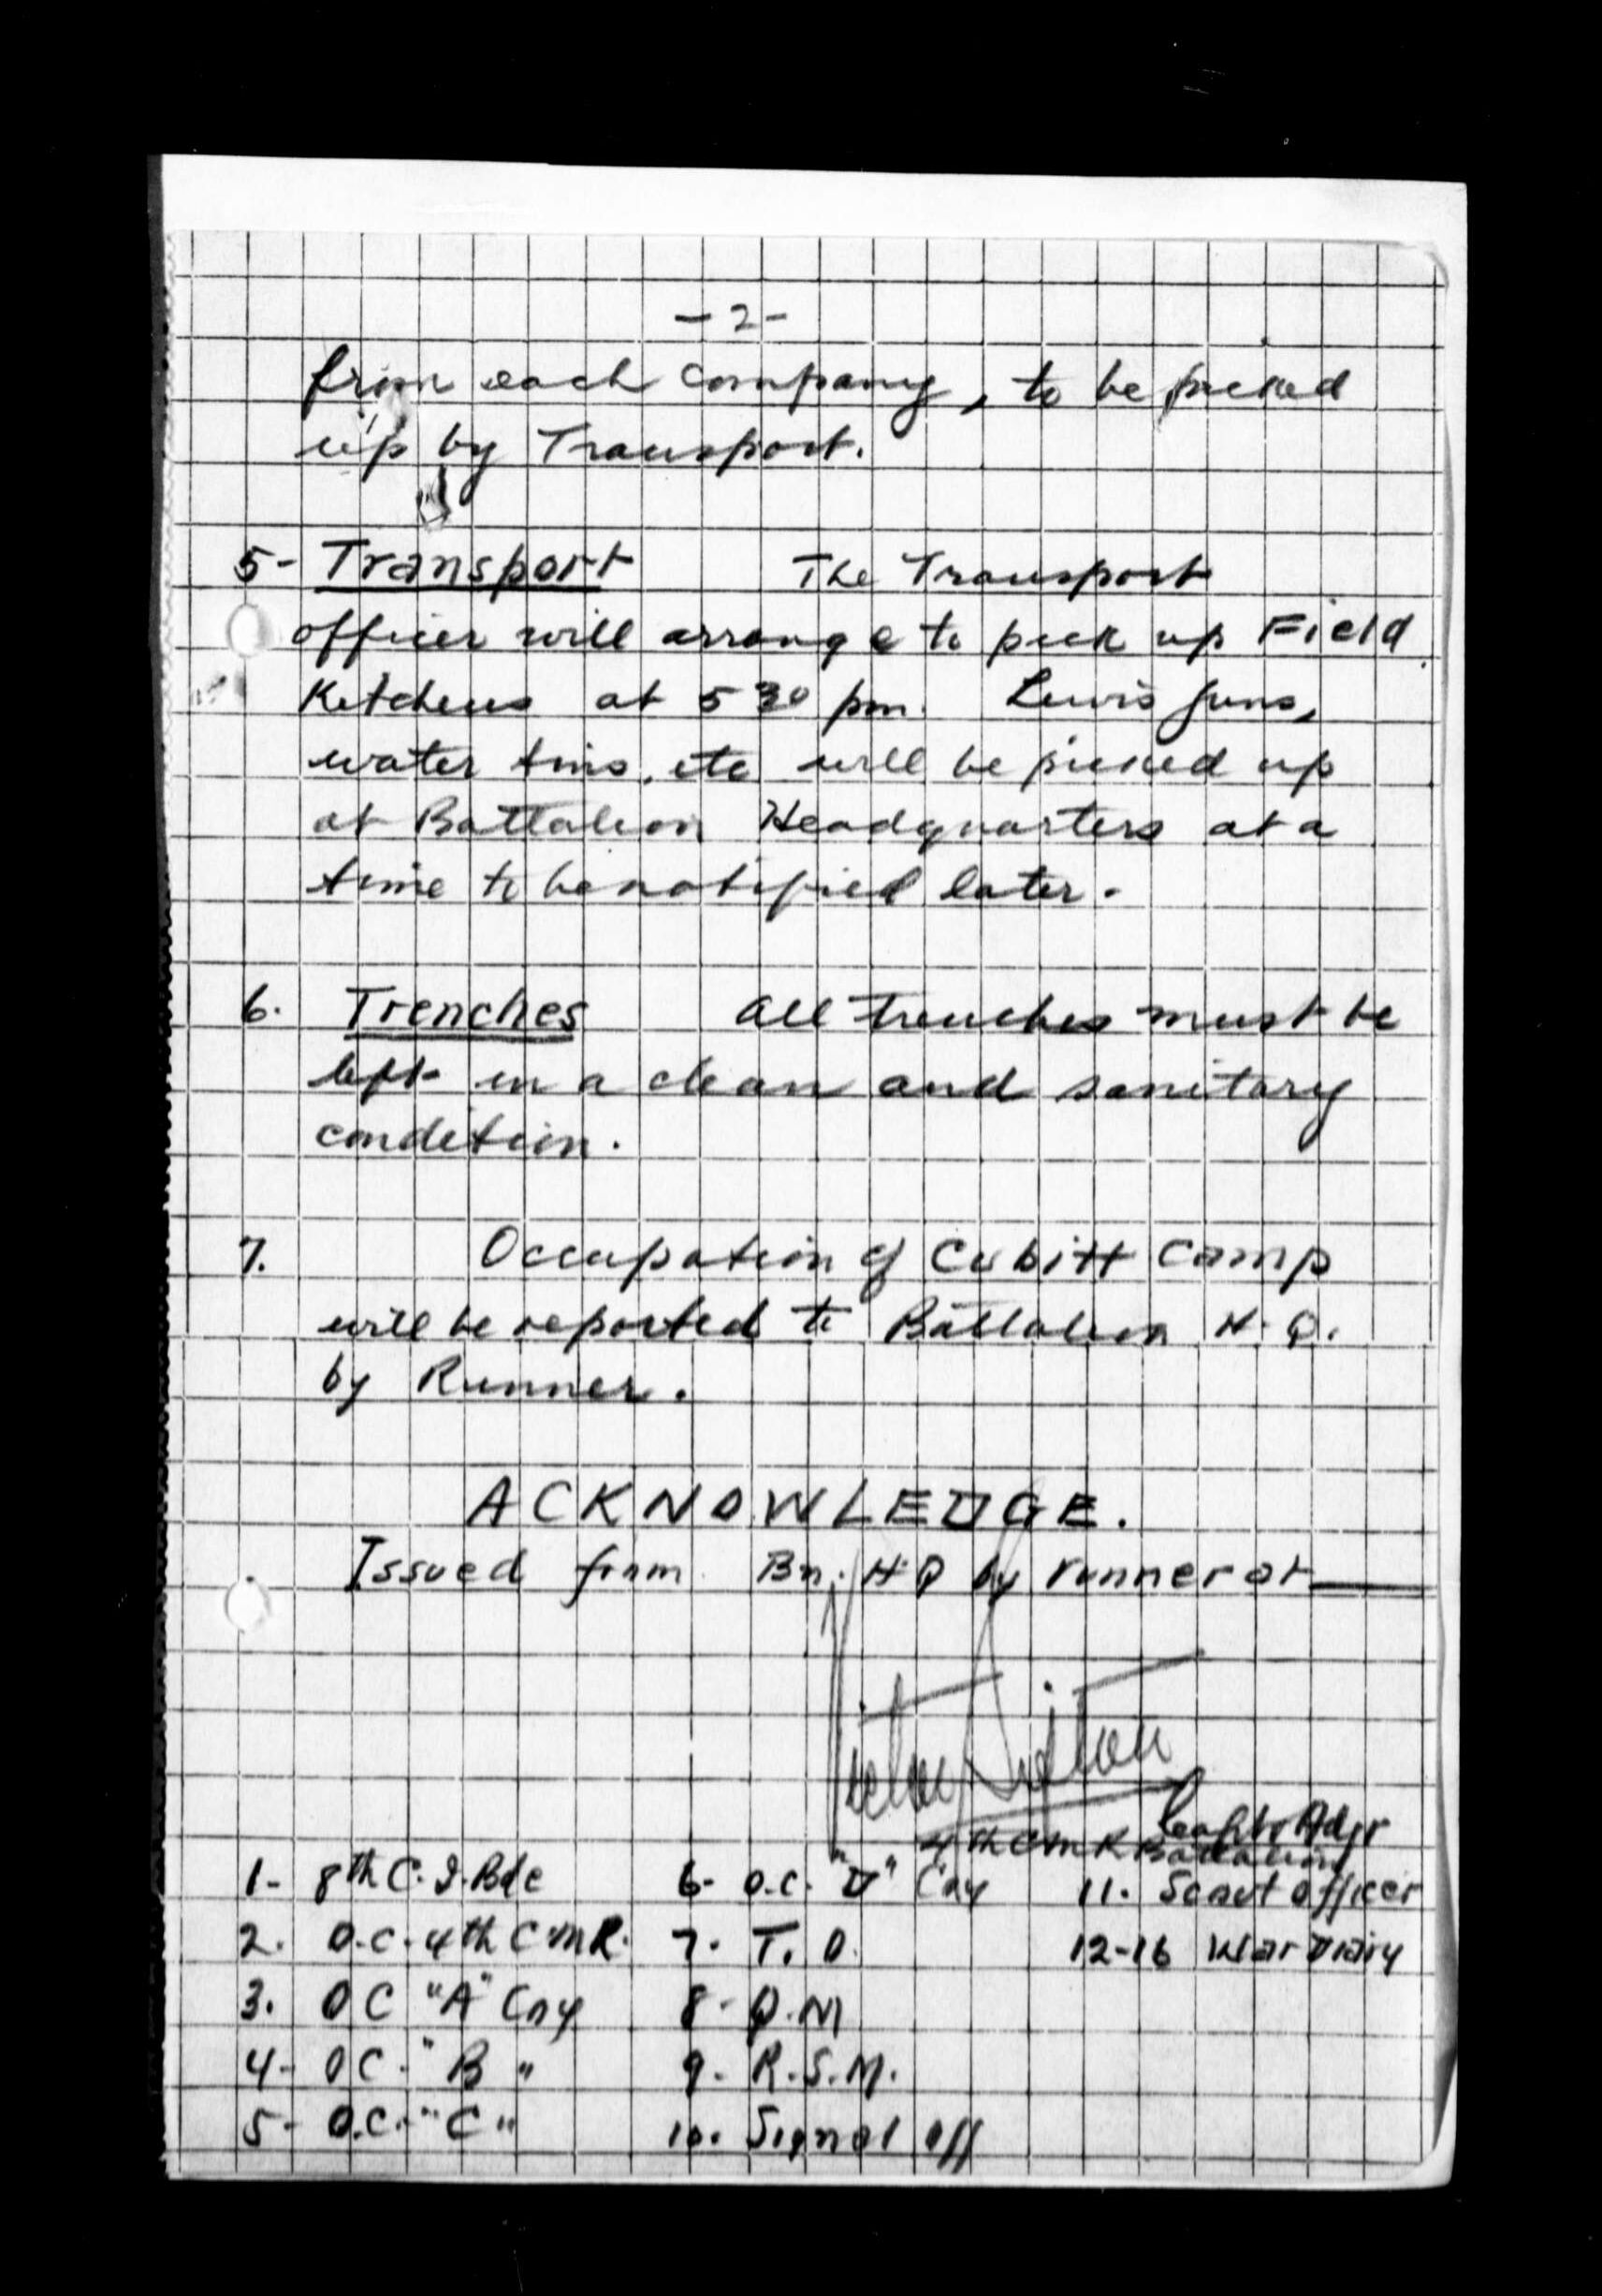 - 2 -
from each company, to be picked
up by Transport.
5- Transport The Transport
officer will arrange to pick up Field
Kitchens at 5 30 pm. Lewis guns,
water tins, etc will be picked up
at Battalion Headquarters at a
time to be notified later.
6. Trenches All trenches must be
left in a clean and sanitary
condition.
7. Occupation of Cubitt Camp
will be reported to Battalion H.Q.
by Runner.
ACKNOWLEDGE.
Issued from Bn. H.Q by runner at
Capt & Adjt
4th CMR Battalion
1- 8th C.I.Bde 6- O.C. "D" Coy 11. Scout officer
2. O.C. 4th CMR. 7. T.O. 12-16 War Diary
3. OC "A" Coy 8- Q.M
4- OC- "B " 9. R.S.M.
5- O.C.- "C" 10. Signal Off